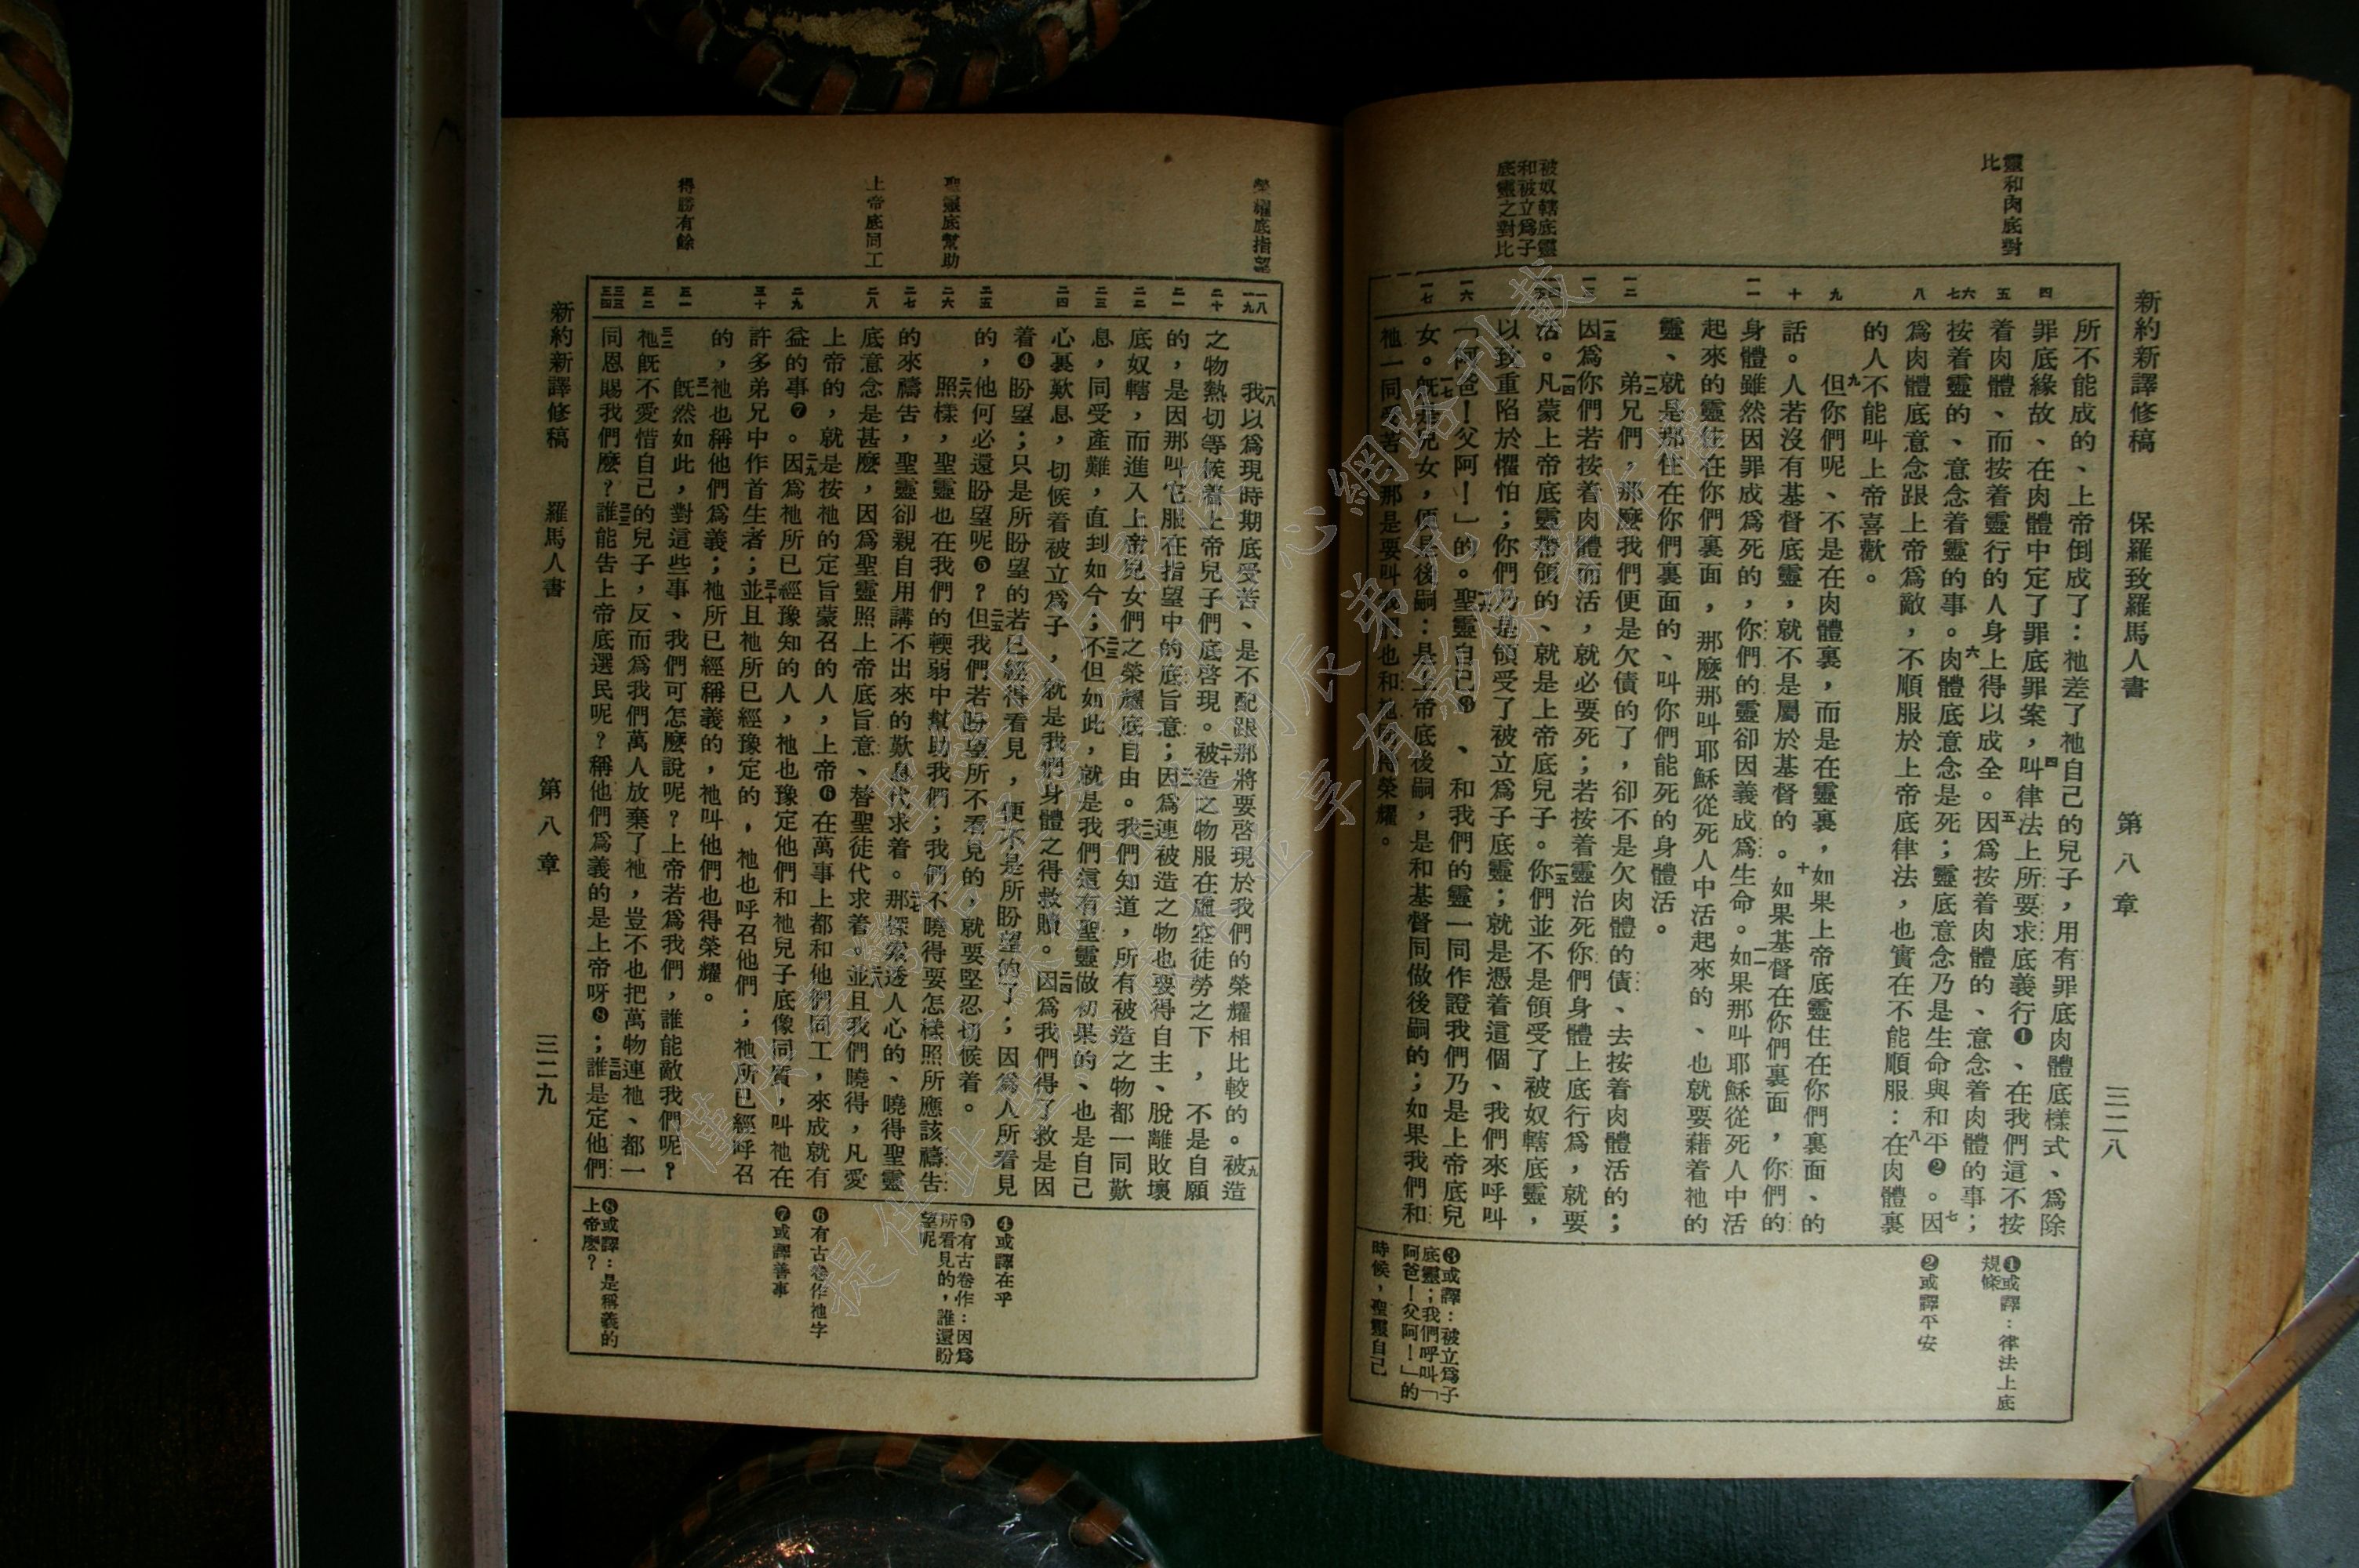 新約新譯修稿 保羅致羅馬人書 第八章 三二八
靈和肉底對
比
被奴轄底靈
和被立爲子
底靈之對比
所不能成的、上帝倒成了：祂差了祂自己的兒子，用有罪底肉體底樣式、爲除
罪底緣故、在肉體中定了罪底罪案，四叫律法上所要求底義行❶、在我們這不按
着肉體、而按着靈行的人身上得以成全。五因爲按着肉體的、意念着肉體的事；
按着靈的、意念着靈的事。六肉體底意念是死；靈底意念乃是生命與和平❷。七因
爲肉體底意念跟上帝爲敵，不順服於上帝底律法，也實在不能順服：八在肉體裏
的人不能叫上帝喜歡。
九但你們呢、不是在肉體裏，而是在靈裏，如果上帝底靈住在你們裏面、的
話。人若沒有基督底靈，就不是屬於基督的。十如果基督在你們裏面，你們的
身體雖然因罪成爲死的，你們的靈卻因義成爲生命。一一如果那叫耶穌從死人中活
起來的靈住在你們裏面，那麼那叫耶穌從死人中活起來的、也就要藉着祂的
靈、就是那住在你們裏面的、叫你們能死的身體活。
一二弟兄們，那麼我們便是欠債的了，卻不是欠肉體的債、去按着肉體活的；
一三因爲你們若按着肉體而活，就必要死；若按着靈治死你們身體上底行爲，就要
活。一四凡蒙上帝底靈帶領的、就是上帝底兒子。一五你們並不是領受了被奴轄底靈，
以致重陷於懼怕；你們乃是領受了被立爲子底靈；就是憑着這個、我們來呼叫
「阿爸！父阿！」的。一六聖靈自己❸、和我們的靈一同作證我們乃是上帝底兒
女。一七旣是兒女，便是後嗣：是上帝底後嗣，是和基督同做後嗣的；如果我們和
祂一同受苦、那是要叫我們也和祂一同得榮耀。
❶或譯：律法上底
規條
❷或譯平安
❸或譯：被立爲子
底靈；我們呼叫「
阿爸！父阿！」的
時候，聖靈自己
榮耀底指望
聖靈底幫助
上帝底同工
得勝有餘
一八我以爲現時期底受苦、是不配跟那將要啓現於我們的榮耀相比較的。一九被造
之物熱切等候着上帝兒子們底啓現。二十被造之物服在虛空徒勞之下，不是自願
的，是因那叫它服在指望中的底旨意；二一因爲連被造之物也要得自主、脫離敗壞
底奴轄，而進入上帝兒女們之榮耀底自由。二二我們知道，所有被造之物都一同歎
息，同受產難，直到如今；二三不但如此，就是我們這有聖靈做初果的、也是自己
心裏歎息，切候着被立爲子，就是我們身體之得救贖。二四因爲我們得了救是因
着❹盼望；只是所盼望的若已經得看見，便不是所盼望的了；因爲人所看見
的，他何必還盼望呢❺？二五但我們若盼望所不看見的，就要堅忍切候着。
二六照樣，聖靈也在我們的輭弱中幫助我們；我們不曉得要怎樣照所應該禱告
的來禱告，聖靈卻親自用講不出來的歎息代求着。二七那探索透人心的、曉得聖靈
底意念是甚麼，因爲聖靈照上帝底旨意、替聖徒代求着。二八並且我們曉得，凡愛
上帝的，就是按祂的定旨蒙召的人，上帝❻在萬事上都和他們同工，來成就有
益的事❼。二九因爲祂所已經豫知的人，祂也豫定他們和祂兒子底像同質，叫祂在
許多弟兄中作首生者；三十並且祂所已經豫定的，祂也呼召他們；祂所已經呼召
的，祂也稱他們爲義；祂所已經稱義的，祂叫他們也得榮耀。
三一旣然如此，對這些事、我們可怎麼說呢？上帝若爲我們，誰能敵我們呢？
三二祂旣不愛惜自己的兒子，反而爲我們萬人放棄了祂，豈不也把萬物連祂、都一
同恩賜我們麼？三三誰能告上帝底選民呢？稱他們爲義的是上帝呀❽；三四誰是定他們
❹或譯在乎
❺有古卷作：因爲
所看見的，誰還盼
望呢
❻有古卷作祂字
❼或譯善事
❽或譯：是稱義的
上帝麼？
新約新譯修稿 羅馬人書 第八章 三二九